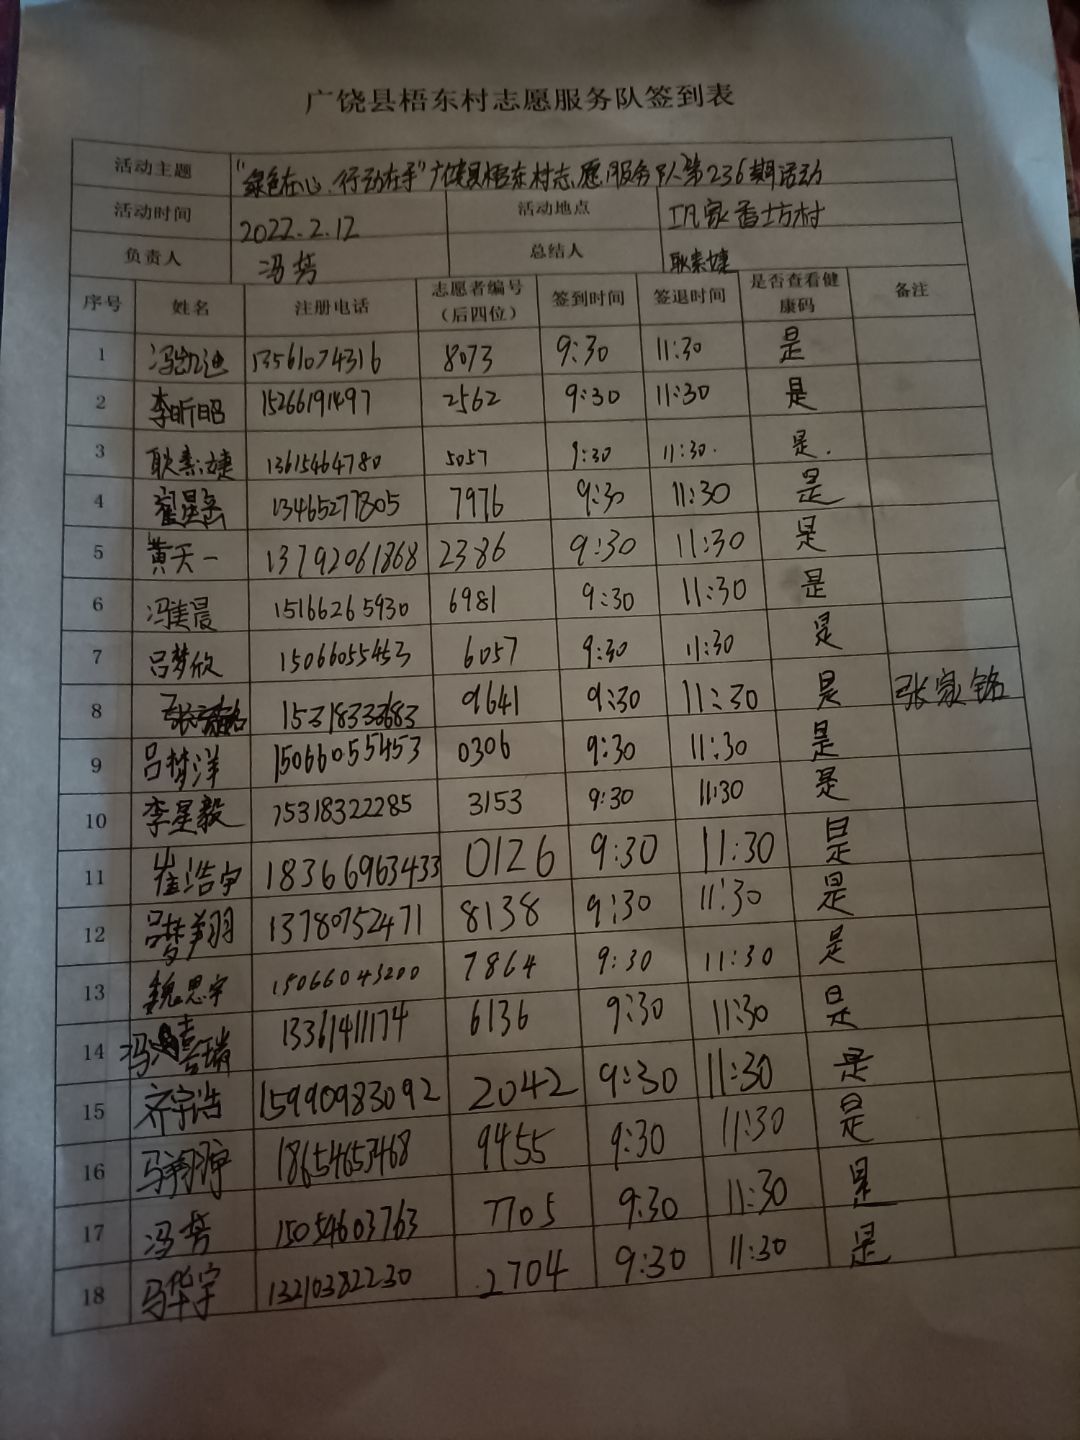 广饶县梧东村志愿服务队签到表
活动主题 "绿色在心、行动在手"广饶县梧东村志愿服务队第236期活动
活动时间 2022.2.12 活动地点 家香坊村
负责人 冯梦 总结人 耿素婕
序号 姓名 注册电话 志愿者编号（后四位） 签到时间 签退时间 是否查看健康码 备注
1 冯凯迪 13561074316 8073 9:30 11:30 是
2 李昕昭 15266191497 2562 9:30 11:30 是
3 耿素婕 13615464780 5057 9:30 11:30. 是.
4 星 13465277805 7976 9:30 11:30 是
5 黄天一 13792061868 2386 9:30 11:30 是
6 冯佳晨 15166265930 6981 9:30 11:30 是
7 吕梦欣 15066055453 6057 9:30 11:30 是
8 15318333683 9641 9:30 11:30 是 张家铭
9 吕梦洋 15066055453 0306 9:30 11:30 是
10 李星毅 15318322285 3153 9:30 11:30 是
11 崔浩宇 18366963433 0126 9:30 11:30 是
12 吕梦翔 13780752471 8138 9:30 11:30 是
13 魏思宇 15066043200 7864 9:30 11:30 是
14 冯喜瑞 13361411174 6136 9:30 11:30 是
15 齐宇浩 15990983092 2042 9:30 11:30 是
16 马翔 18654653468 9455 9:30 11:30 是
17 冯梦 15054603763 7705 9:30 11:30 是
18 马华宇 13210382230 2704 9:30 11:30 是